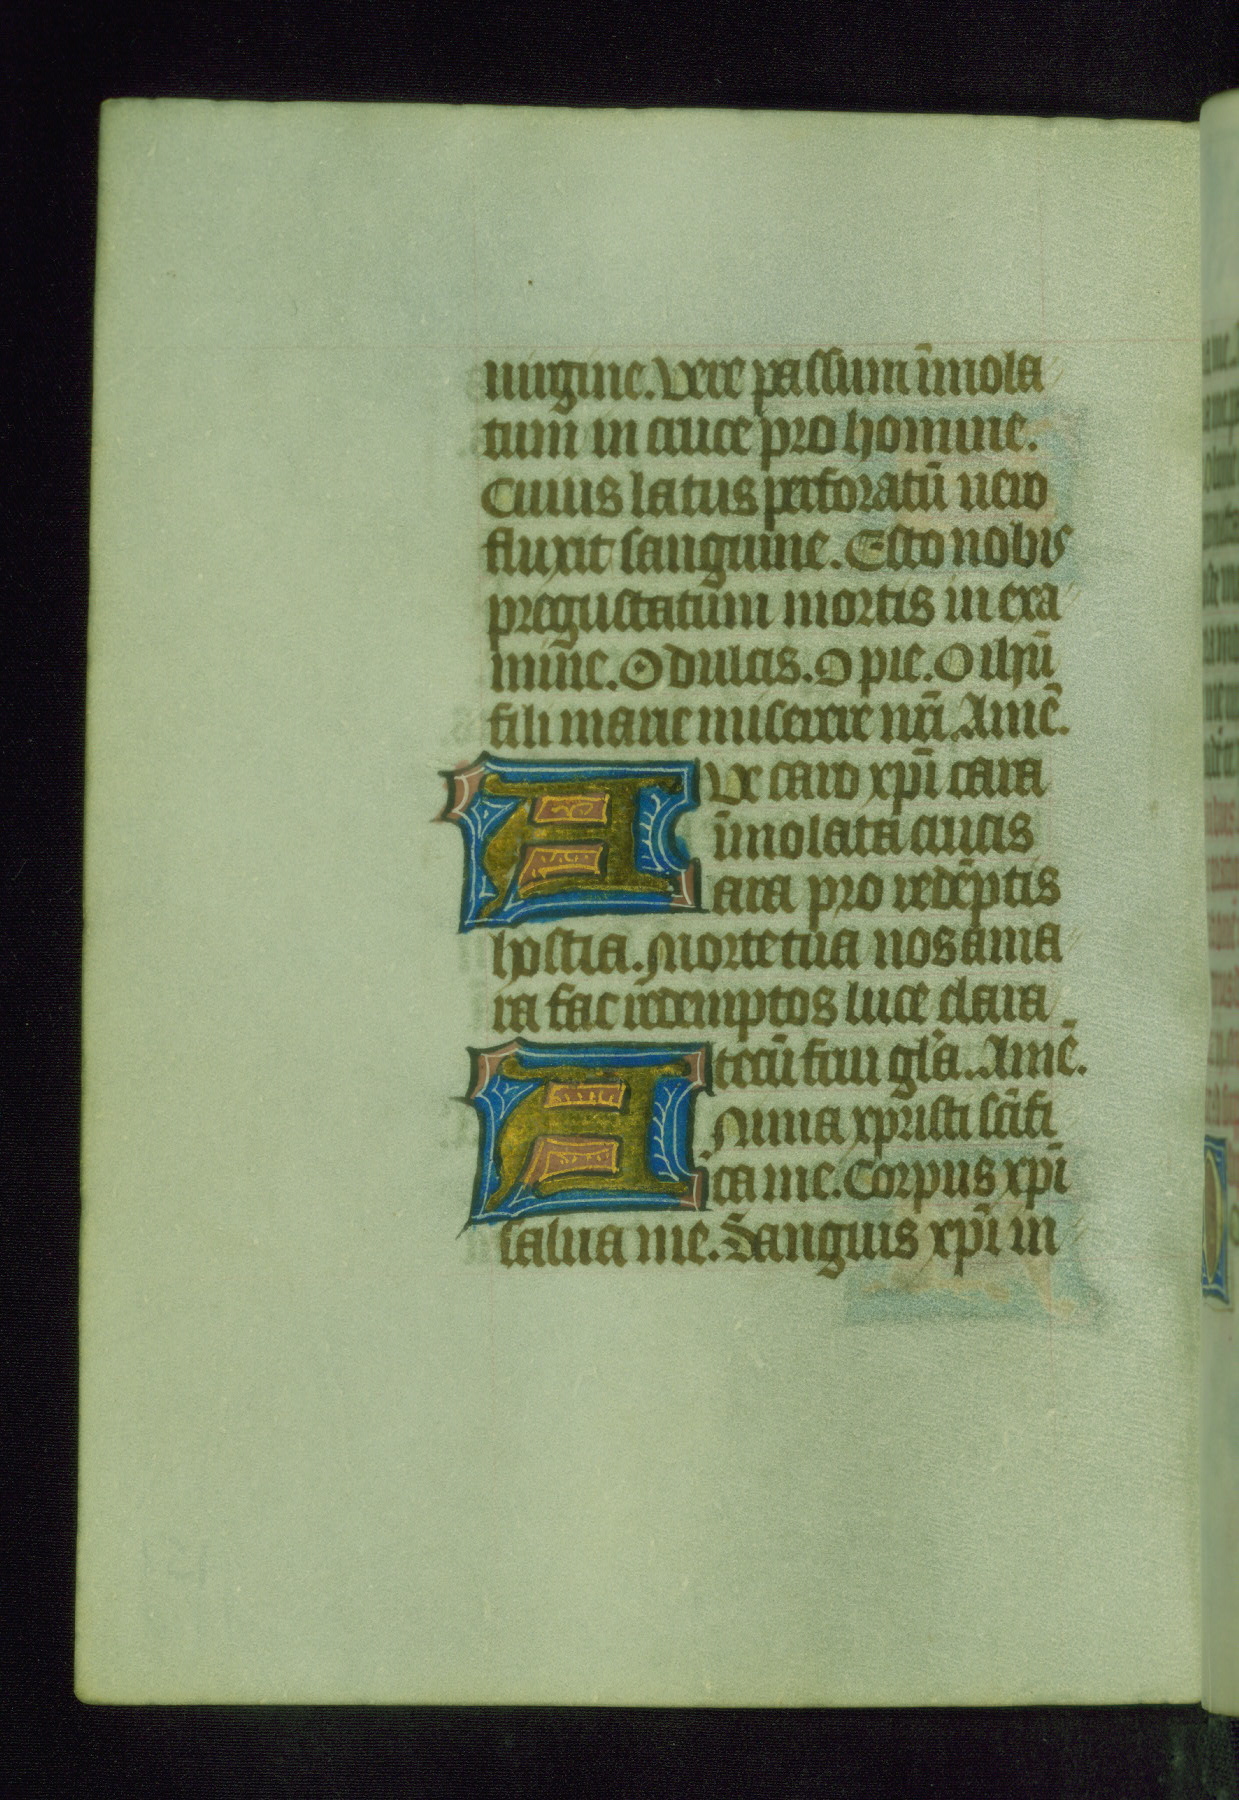 uirgine. Vere passum īmola
tum in cruce pro homine.
Cuius latus perforatū uero
fluxit sanguine. Esto nobis
pregustatum mortis in exa
mine. O dulcis. O pie. O ihū
fili marie miserere nr̄i. Amē.
AVe caro xpī cara
īmolata crucis
ara pro redēptis
hystia. Morte tua nos ama
ra fac redemptos luce clara
tecū frui gl̄a. Amē.
ANima xpristi scīfi
ca me. Corpus xpī
salua me. Sanguis xpī in